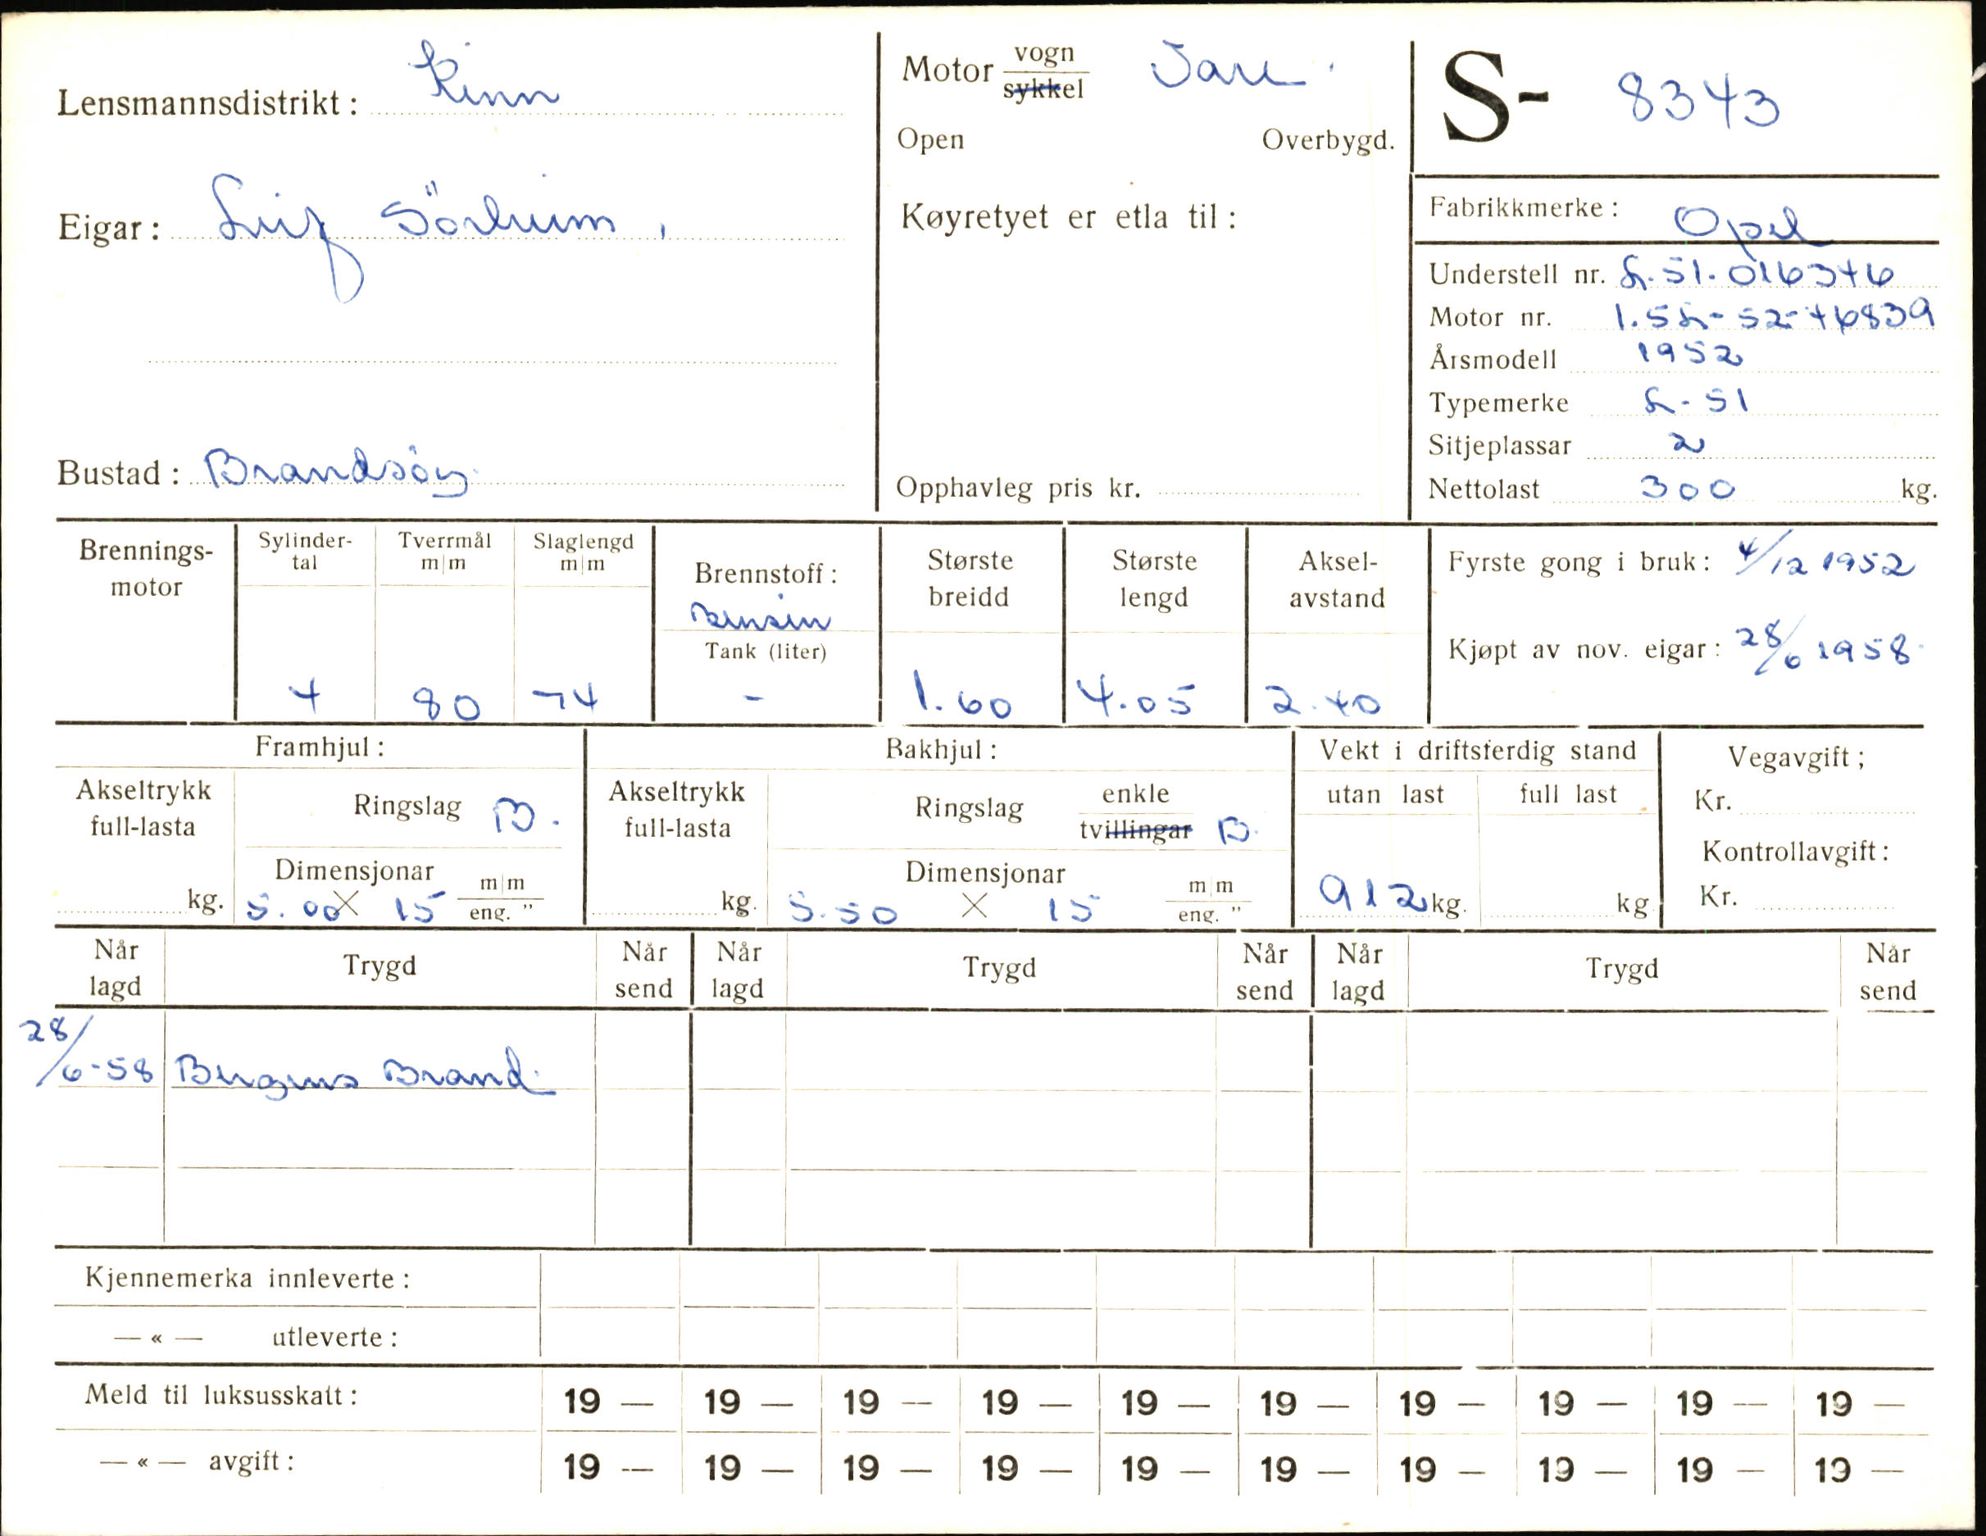 Lensmannsdistrikt: Kinn
Eigar: Leif Sörheim.
Bustad: Brandsöy.
Motor vogn
sykkel
Vare.
Open Overbygd.
Køyretyet er etla til:
Opphavleg pris kr.
S- 8343
Fabrikkmerke: Opel
Understell nr. L-51-016346
Motor nr. 1.5L-52-46839
Årsmodell 1952
Typemerke L-51
Sitjeplassar 2
Nettolast 300 kg.
Brennings-
motor
Sylinder-
tal
4
Tverrmål
m/m
80
Slaglengd
m/m
74
Brennstoff:
Bensin
Tank (liter)
-
Største
breidd
1.60
Største
lengd
4.05
Aksel-
avstand
2.40
Fyrste gong i bruk: 4/12 1952
Kjøpt av nov. eigar: 28/6 1958.
Framhjul:
Akseltrykk
full-lasta
kg.
Ringslag B.
Dimensjonar m/m
5.00 X 15 eng. "
Bakhjul:
Akseltrykk
full-lasta
kg.
Ringslag enkle
tvillingar B.
Dimensjonar m/m
5.50 X 15 eng. "
Vekt i driftsferdig stand
utan last full last
912 kg. kg
Vegavgift;
Kr.
Kontrollavgift:
Kr.
Når
lagd
Trygd
Når
send
Når
lagd
Trygd
Når
send
Når
lagd
Trygd
Når
send
28/6-58 Bergens Brand.
Kjennemerka innleverte:
— « — utleverte:
Meld til luksusskatt: 19 — 19 — 19 — 19 — 19 — 19 — 19 — 19 — 19 — 19 —
— « — avgift: 19 — 19 — 19 — 19 — 19 — 19 — 19 — 19 — 19 — 19 —